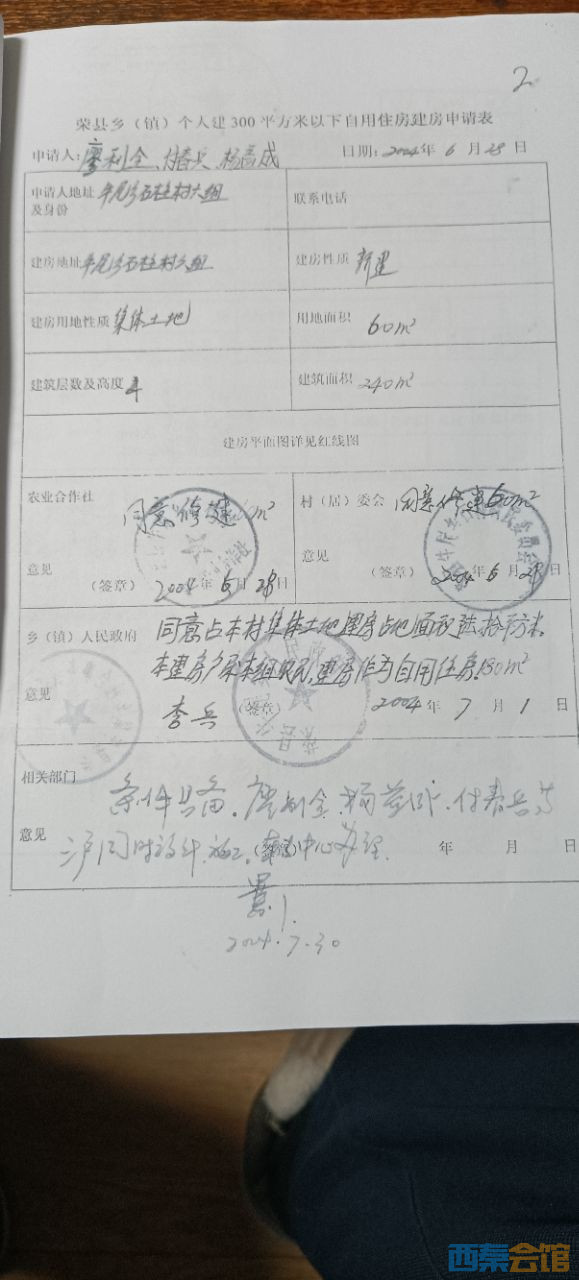 2
荣县乡（镇）个人建300平方米以下自用住房建房申请表
申请人：廖利全、付春兵、杨益成 日期：2004年6月28日
申请人地址及身份 牟尾乡石柱村六组 联系电话
建房地址 牟尾乡石柱村六组 建房性质 新建
建房用地性质 集体土地 用地面积 60m²
建筑层数及高度 4 建筑面积 240m²
建房平面图详见红线图
农业合作社 同意修建 m² 村（居）委会 同意修建60m²
意见 意见
（签章）2004年6月28日 （签章）2004年6月28日
乡（镇）人民政府 同意占本村集体土地建房占地面积陆拾平方米。
本建房户系本组农民，建房作为自用住房180m²
意见 李兵 （签章） 2004年7月1日
相关部门 条件具备。廖利全、杨益成、付春兵等
意见 三户同时设计、施工。 中心办理 年 月 日
2004.7.30
西秦会馆